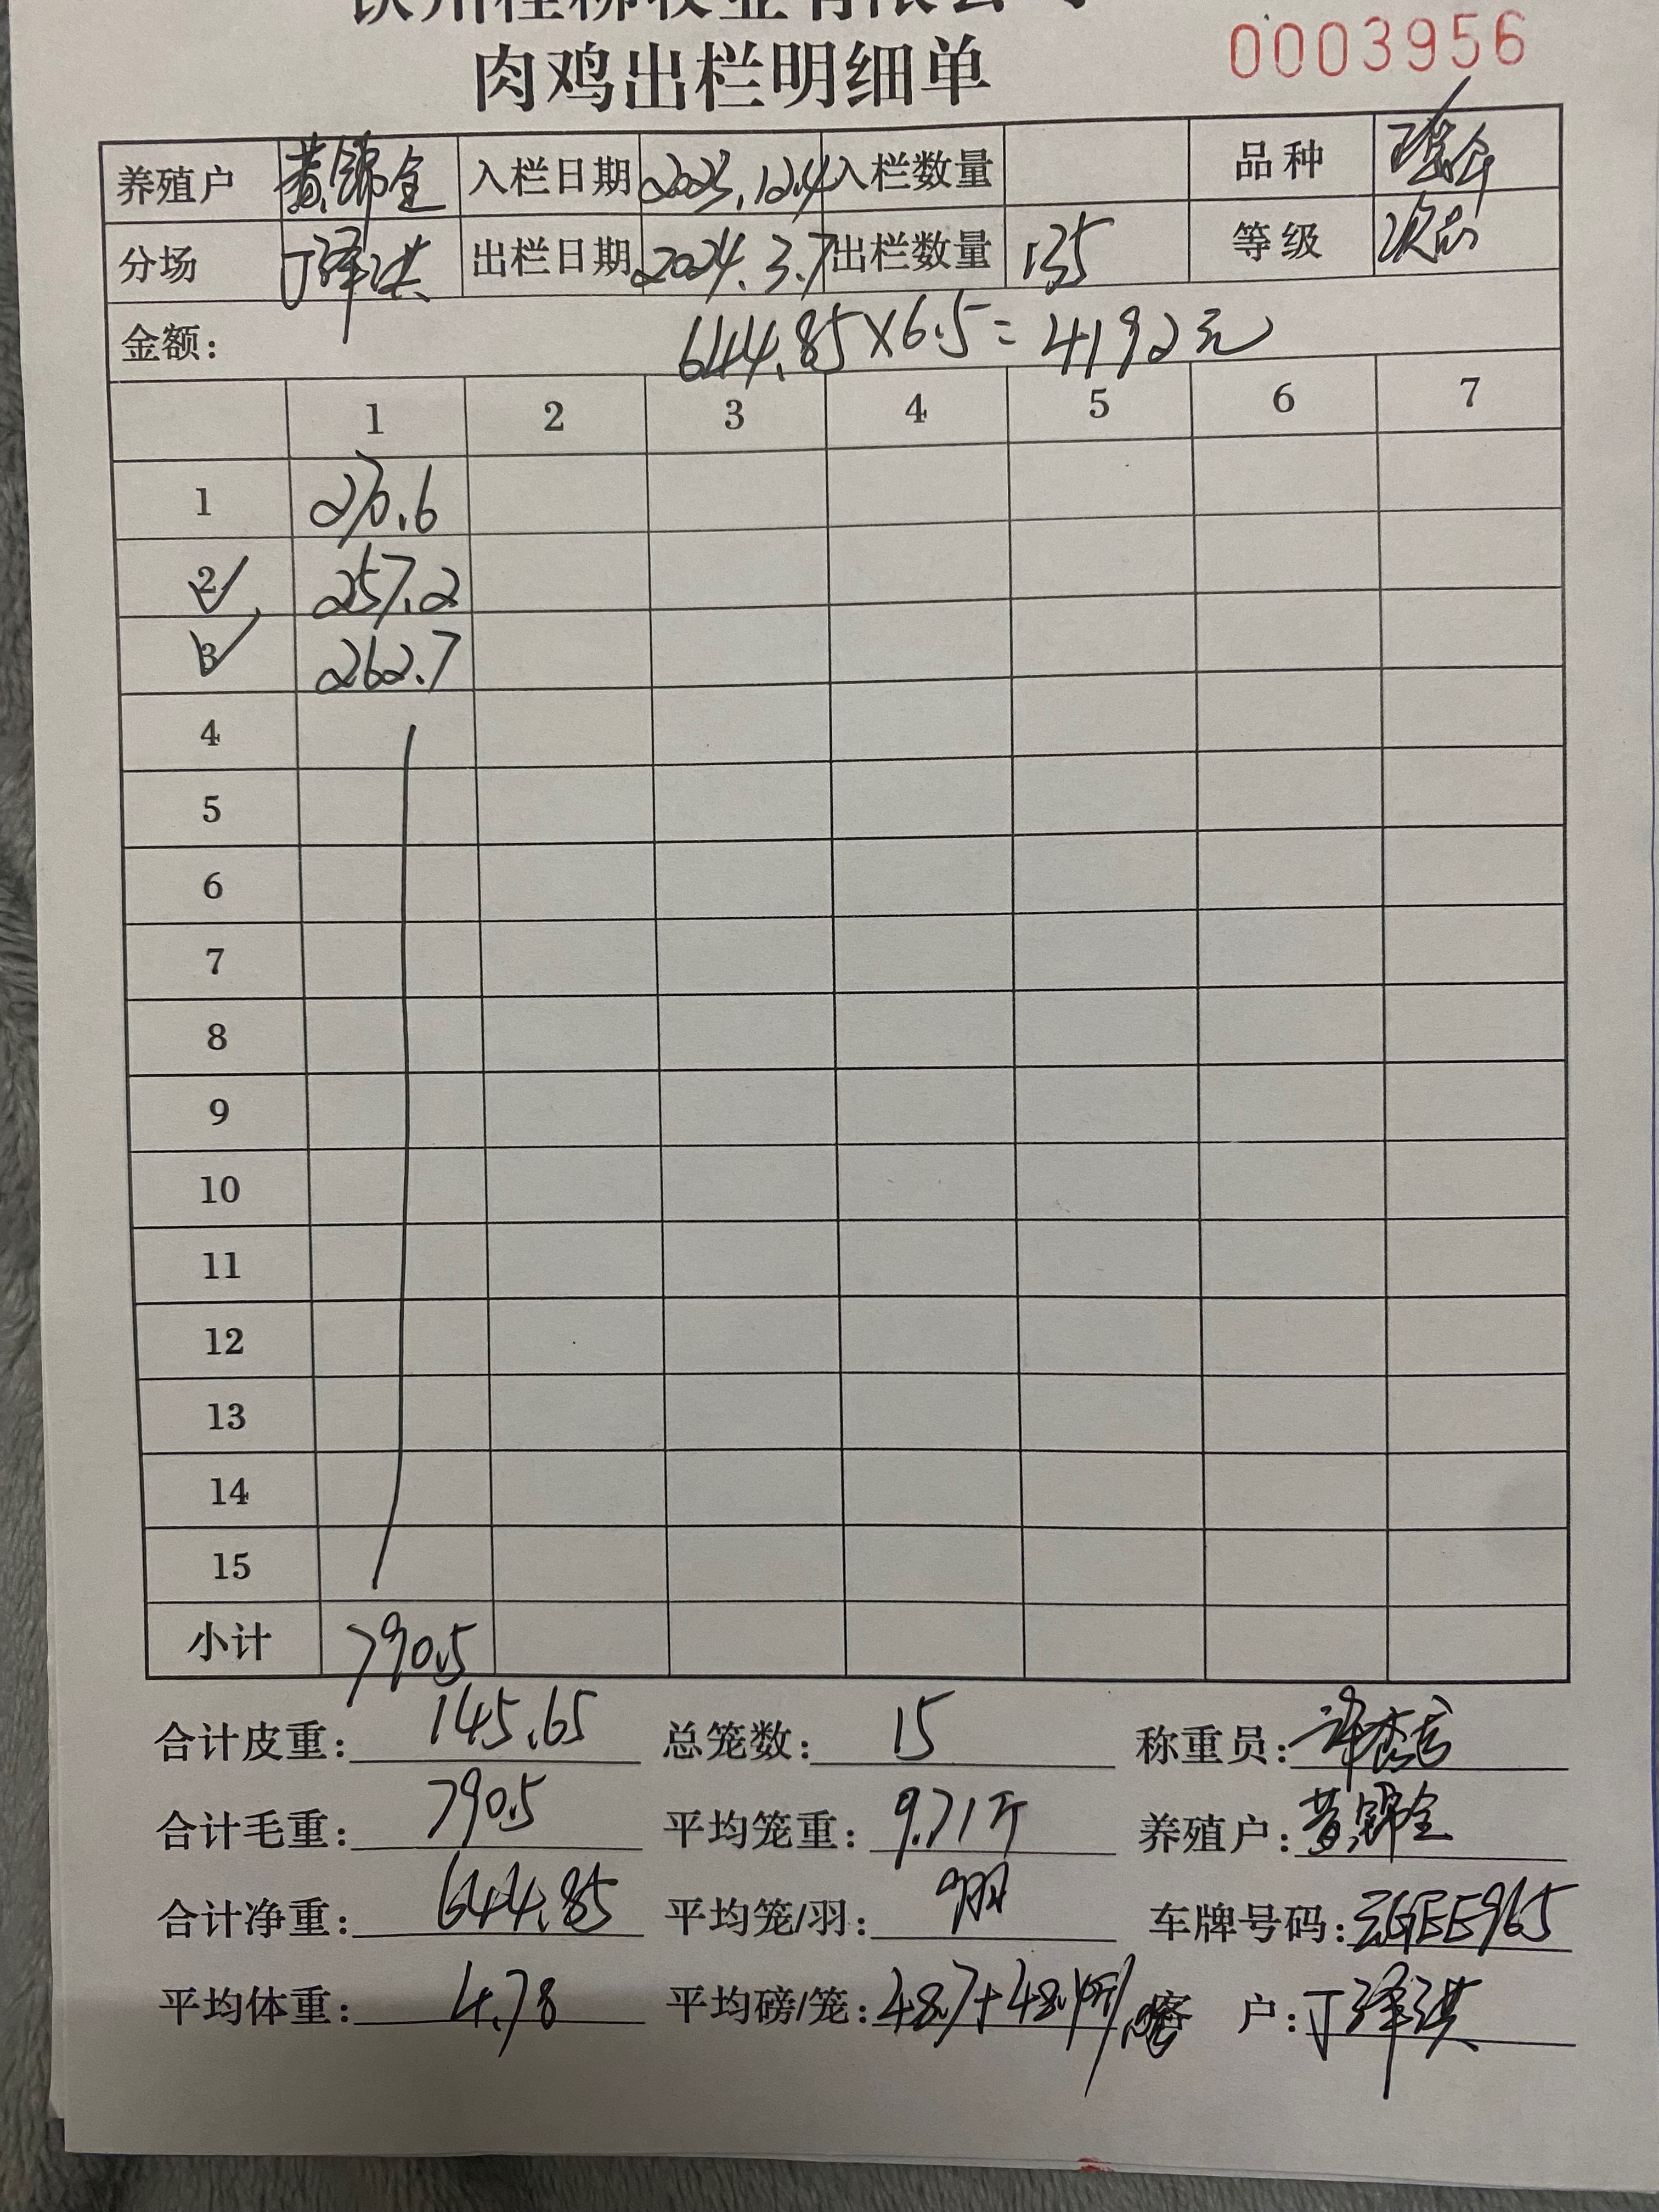 钦州桂柳牧业有限公司
肉鸡出栏明细单
0003956
养殖户 黄锦全 入栏日期 2023.12.4 入栏数量 品种 瑶鸡
分场 丁泽洪 出栏日期 2024.3.7 出栏数量 135 等级 次
金额: 644.85×6.5=4192元
1 2 3 4 5 6 7
1 270.6
2 257.2
3 262.7
4
5
6
7
8
9
10
11
12
13
14
15
小计 790.5
合计皮重: 145.65 总笼数: 15 称重员:
合计毛重: 790.5 平均笼重: 9.71斤 养殖户: 黄锦全
合计净重: 644.85 平均笼/羽: 9羽 车牌号码: EE965
平均体重: 4.78 平均磅/笼: 48.7+48. 客 户: 丁泽洪